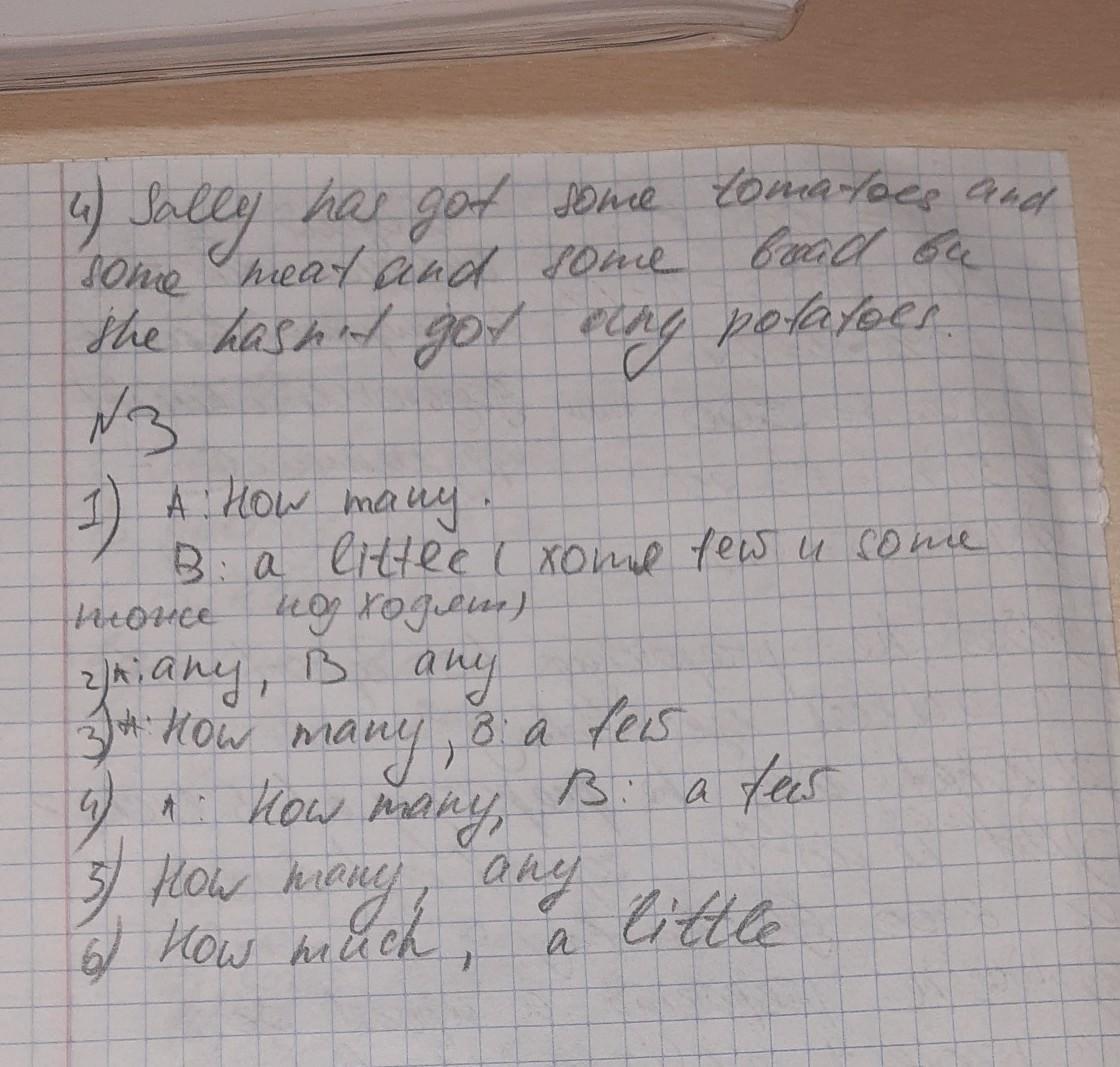 4) Sally has got some tomatoes and
some meat and some bread bu
she hasn't got any potatoes.
N3
1) A: How many.
B: a little ( хотя few и some
тоже подходят)
2) A: any, B any
3) A: How many, B: a few
4) A: How many, B: a few
5) How many, any
6) How much, a little